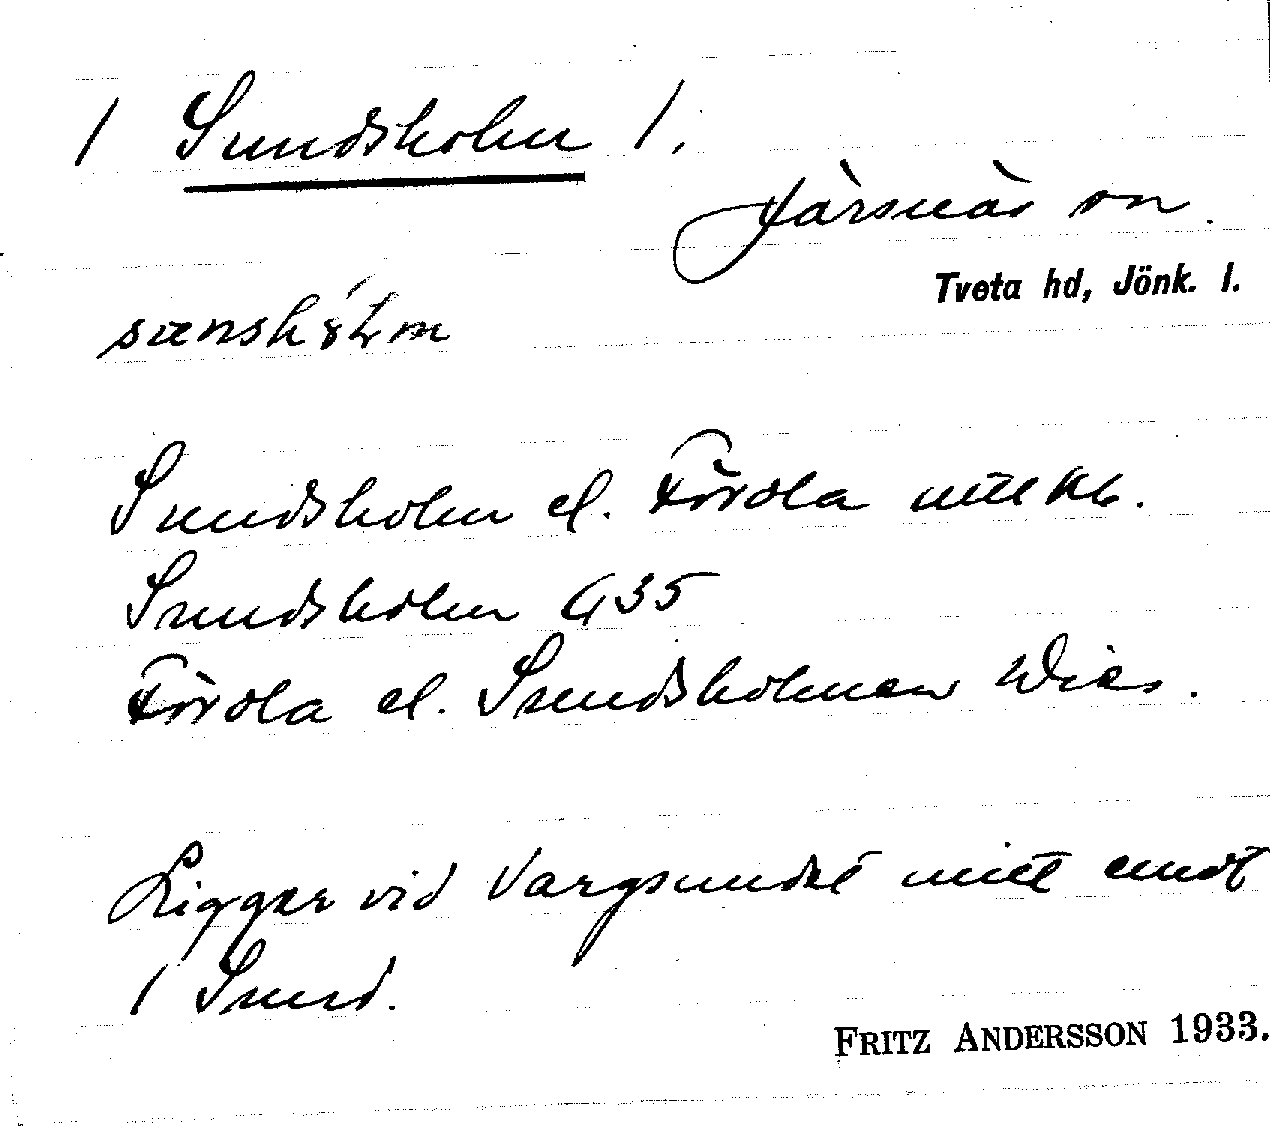 / Sundsholm /.
Järsnäs sn.
Tveta hd, Jönk. l.
Sundsholm el. Fårdla
Sundsholm G 35
Fårdla el. Sundsholmen Wies.
Ligger vid Vargsundet mitt emot
/ Sund.
FRITZ ANDERSSON 1933.